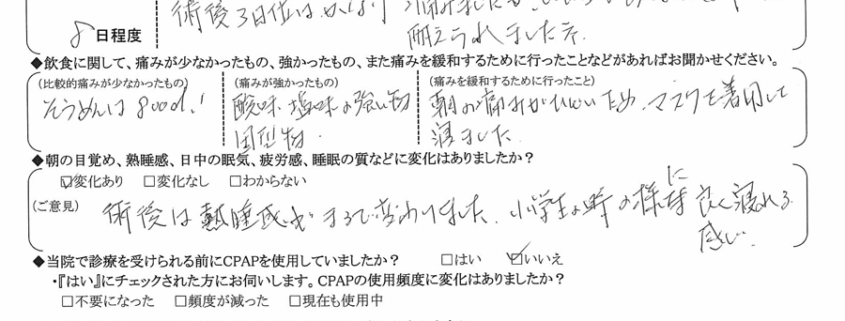 術後3日位は
8日程度
耐えられました。
◆飲食に関して、痛みが少なかったもの、強かったもの、また痛みを緩和するために行ったことなどがあればお聞かせください。
(比較的痛みが少なかったもの) (痛みが強かったもの) (痛みを緩和するために行ったこと)
そうめんは good! 酸味・塩味の強い物 朝の痛みがひどいため、マスクを着用して
固型物. 寝ました.
◆朝の目覚め、熟睡感、日中の眠気、疲労感、睡眠の質などに変化はありましたか?
☑変化あり □変化なし □わからない
(ご意見) 術後は熟睡感がまるで変わりました. 小学生の時の様に良く寝れる
感じ.
◆当院で診療を受けられる前にCPAPを使用していましたか? □はい ☑いいえ
・『はい』にチェックされた方にお伺いします。CPAPの使用頻度に変化はありましたか?
□不要になった □頻度が減った □現在も使用中